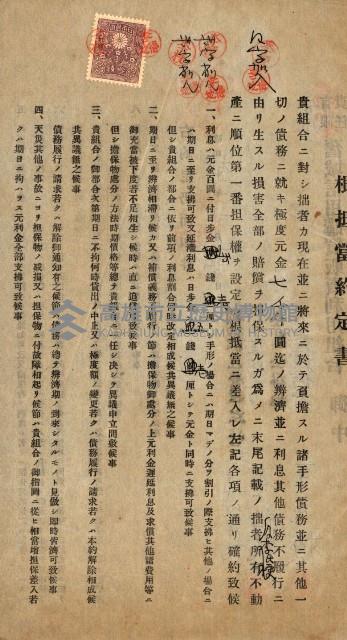 根抵當約定書
貴組合ニ對シ拙者カ現在並ニ將來ニ於テ負擔スル諸手形債務並ニ其他一
切ノ債務ニ就キ極度元金七千圓迄ノ辨濟並ニ利息其他債務不履行ニ
由リ生スル損害全部ノ賠償ヲ擔保スルガ爲メニ末尾記載ノ拙者所有不動
產ニ順位第一番担保權ヲ設定シ根抵當ニ差入レ左記各項ノ通リ確約致候
一、利息ハ元金百圓ニ付日歩金 錢 手形ノ場合ニハ期日マデノ分ヲ割引ノ際支拂ヒ其他ノ場合ニ
ハ期日ニ至リ支拂可致又延滯利息ハ日歩 錢 厘トシテ元金ト同時ニ支拂可致候事
但シ貴組合ノ都合ニ依リ前項ノ利息割合 改定相成候共異議無之候事
二、期日ニ至リ辨濟相滯リ候カ又ハ本補償義務不履行ノ節ハ擔保物御處分ノ上元利金遲延利息及求償其他諸費用等ニ
御充當被下度若不足相生シ候時ハ直ニ追償可致候事
但シ擔保物處分ノ方法時期價格等總テ貴組合ニ任シ決シテ異議申立間敷候事
三、貴組合ノ御都合次第期日ニ不拘何時貸出ノ中止又ハ極度額ノ變更若クハ債務履行ノ請求若クハ本約解除相成候
共異議無之候事
債務履行ノ請求若クハ解除御通知有之候節ハ債務ハ總テ辨濟期ノ到來シタルモノト見做シ即時皆濟可致候事
四、天災其他ノ事故ニヨリ担保物ノ毀損又ハ担保物ニ付故障相起リ候節ハ貴組合ノ御指圖ニ從ヒ相當增担保差入若
クハ期日ニ拘ハラス元利金全部支拂可致候事